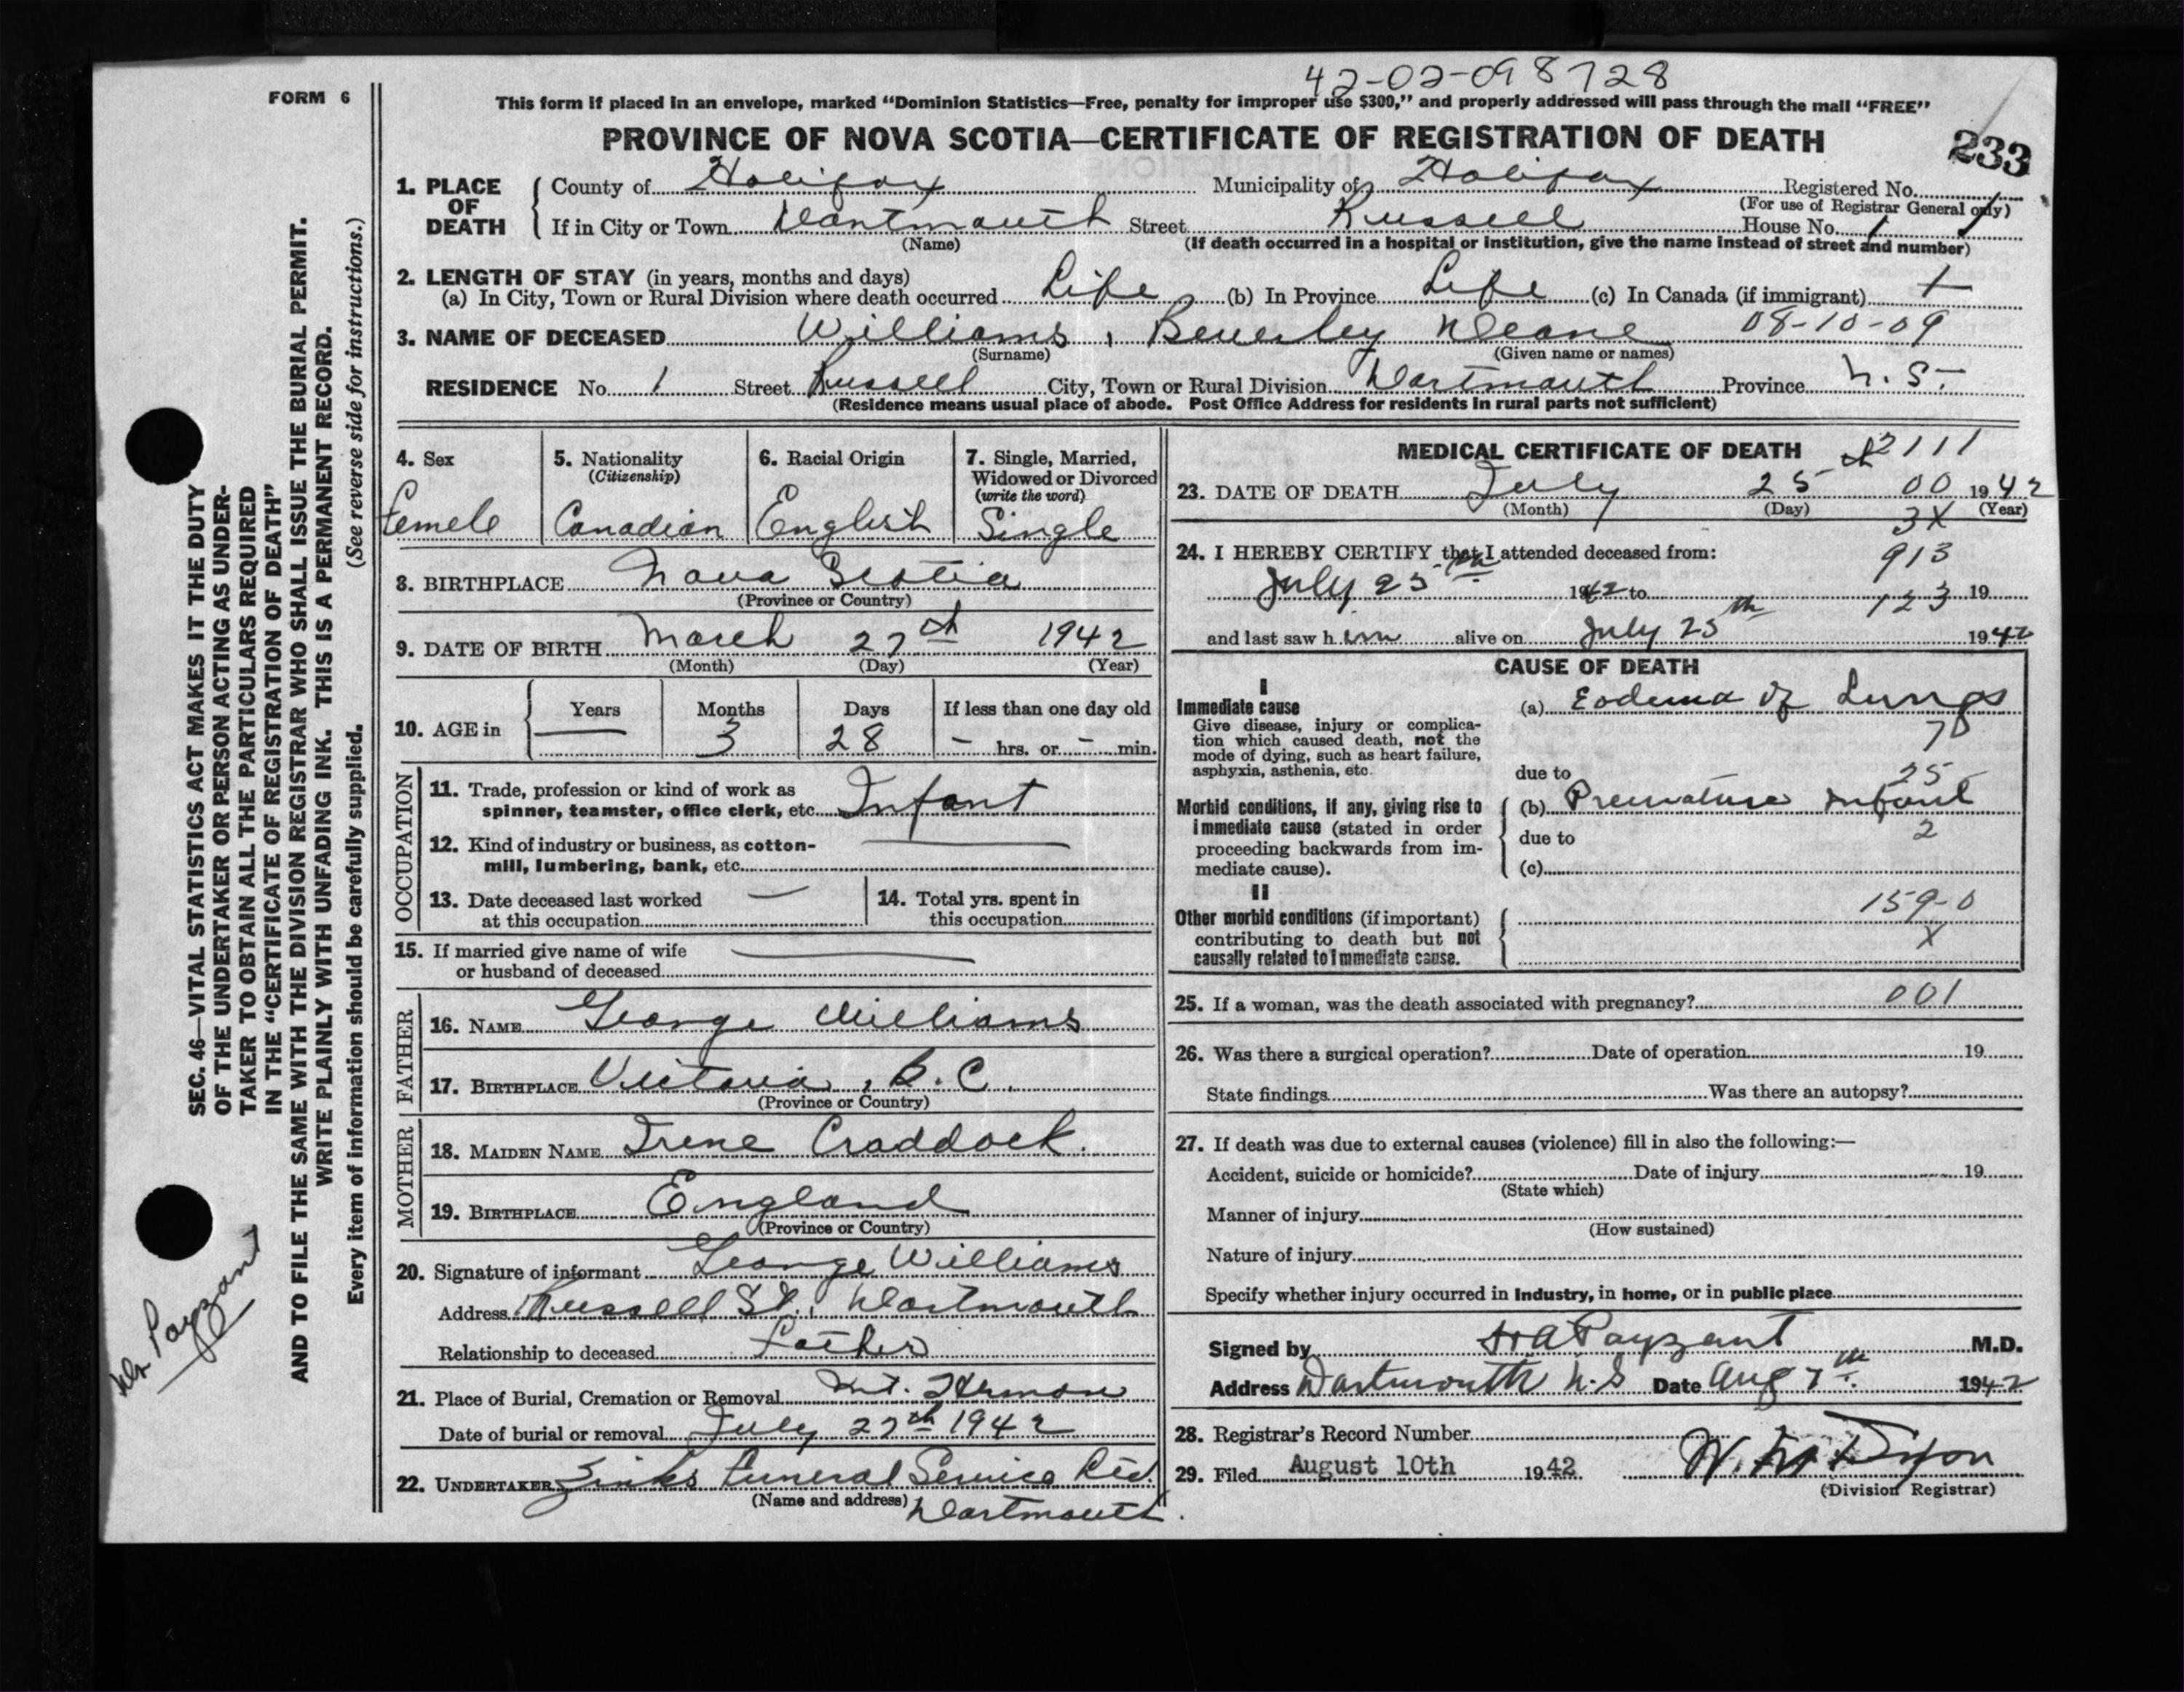 42-02-098728
FORM 6
This form if placed in an envelope, marked “Dominion Statistics—Free, penalty for improper use $300,” and properly addressed will pass through the mail “FREE”
PROVINCE OF NOVA SCOTIA—CERTIFICATE OF REGISTRATION OF DEATH
233
1. PLACE OF DEATH County of Halifax Municipality of Halifax Registered No.
(For use of Registrar General only)
If in City or Town Dartmouth Street Russell House No. 1
(Name) (If death occurred in a hospital or institution, give the name instead of street and number)
2. LENGTH OF STAY (in years, months and days)
(a) In City, Town or Rural Division where death occurred Life (b) In Province Life (c) In Canada (if immigrant)
3. NAME OF DECEASED Williams, Beverley Deane 08-10-09
(Surname) (Given name or names)
RESIDENCE No. 1 Street Russell City, Town or Rural Division Dartmouth Province N.S.
(Residence means usual place of abode. Post Office Address for residents in rural parts not sufficient)
4. Sex
Female
5. Nationality
(Citizenship)
Canadian
6. Racial Origin
English
7. Single, Married,
Widowed or Divorced
(write the word)
Single
8. BIRTHPLACE Nova Scotia
(Province or Country)
9. DATE OF BIRTH March 27th 1942
(Month) (Day) (Year)
10. AGE in Years Months Days If less than one day old
— 3 28 - hrs. or - min.
OCCUPATION
11. Trade, profession or kind of work as
spinner, teamster, office clerk, etc. Infant
12. Kind of industry or business, as cotton-
mill, lumbering, bank, etc. —
13. Date deceased last worked
at this occupation —
14. Total yrs. spent in
this occupation
15. If married give name of wife
or husband of deceased —
FATHER
16. NAME George Williams
17. BIRTHPLACE Victoria, B.C.
(Province or Country)
MOTHER
18. MAIDEN NAME Irene Craddock.
19. BIRTHPLACE England
(Province or Country)
20. Signature of informant George Williams
Address Russell St., Dartmouth
Relationship to deceased Father
21. Place of Burial, Cremation or Removal Mt. Hermon
Date of burial or removal July 27th 1942
22. UNDERTAKER Zinks Funeral Service Ltd.
(Name and address) Dartmouth.
MEDICAL CERTIFICATE OF DEATH 2111
23. DATE OF DEATH July 25th 00 1942
(Month) (Day) (Year)
3X
24. I HEREBY CERTIFY that I attended deceased from:
913
July 25th 1942 to 19
123
and last saw h im alive on July 25th 1942
CAUSE OF DEATH
I
Immediate cause
Give disease, injury or complica-
tion which caused death, not the
mode of dying, such as heart failure,
asphyxia, asthenia, etc.
(a) Eodema of Lungs
due to
25
Morbid conditions, if any, giving rise to
immediate cause (stated in order
proceeding backwards from im-
mediate cause).
(b) Premature Infant
due to 2
(c)
II
Other morbid conditions (if important)
contributing to death but not
causally related to immediate cause.
159-0
X
25. If a woman, was the death associated with pregnancy? 001
26. Was there a surgical operation? Date of operation 19
State findings Was there an autopsy?
27. If death was due to external causes (violence) fill in also the following:—
Accident, suicide or homicide? Date of injury 19
(State which)
Manner of injury
(How sustained)
Nature of injury
Specify whether injury occurred in Industry, in home, or in public place
Signed by H A Payzant M.D.
Address Dartmouth N.S Date Aug 7th 1942
28. Registrar's Record Number
29. Filed August 10th 1942
(Division Registrar)
SEC. 46—VITAL STATISTICS ACT MAKES IT THE DUTY
OF THE UNDERTAKER OR PERSON ACTING AS UNDER-
TAKER TO OBTAIN ALL THE PARTICULARS REQUIRED
IN THE “CERTIFICATE OF REGISTRATION OF DEATH”
AND TO FILE THE SAME WITH THE DIVISION REGISTRAR WHO SHALL ISSUE THE BURIAL PERMIT.
WRITE PLAINLY WITH UNFADING INK. THIS IS A PERMANENT RECORD.
Every item of information should be carefully supplied. (See reverse side for instructions.)
Dr Payzant